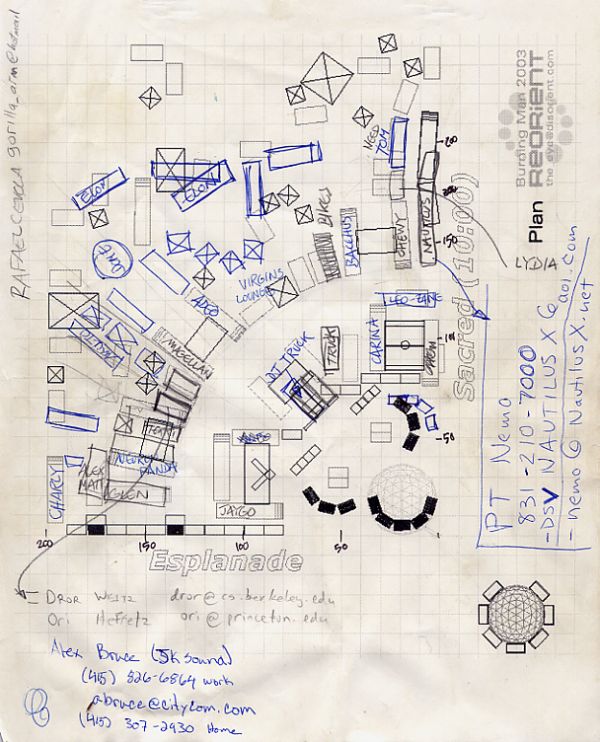 RAFAEL gorilla_arm@hotmail
Burning Man 2003
REORIENT
the.dva@disorient.com
Plan
Sacred (10:00)
Esplanade
200
150
100
50
200
150
50
NEED
TOM
ELON
ELON
DOME
VIRGINS
LOUNGE
BIKES
BACCHUS
CHEWY
NAUTILUS
LYDIA
ADGO
MAGELLAN
DJ TRUCK
TRUCK
CARINA
CHARLY
ALEX
MATT
GLEN
PANDA
JAYGO
PT Nemo
831-210-7000
-DSV NAUTILUS X @ aol.com
-nemo @ NautilusX.net
DROR WEITZ dror@cs.berkeley.edu
Ori Heffetz ori@princeton.edu
Alex Bruce (5K Sound)
(415) 826-6864 work
abruce@citycom.com
(415) 307-2930 Home